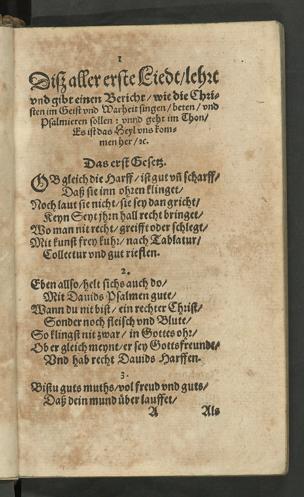 1
Diß aller erste Liedt/lehrt
vnd gibt einen Bericht/ wie die Chri-
sten im Geist vnd Warheit singen/ beten/ vnd
Psalmieren sollen: vnnd geht im Thon/
Es ist das Heyl vns kom-
men her/ ꝛc.
Das erst Gesetz.
OB gleich die Harff/ ist gut vñ scharff/
Daß sie inn ohren klinget/
Noch laut sie nicht/ sie sey dan gricht/
Keyn Seyt jhrn hall recht bringet/
Wo man nit recht/ greifft oder schlegt/
Mit kunst frey kuhr/ nach Tablatur/
Collectur vnd gut riefften.
2.
Eben allso/ helt sichs auch do/
Mit Dauids Psalmen gute/
Wann du nit bist/ ein rechter Christ/
Sonder noch fleisch vnd Blute/
So klingst nit zwar/ in Gottes ohr/
Ob er gleich meynt/ er sey Gottsfreundt/
Vnd hab recht Dauids Harffen.
3.
Bistu guts muths/ vol freud vnd guts/
Daß dein mund über lauffet/
A Als